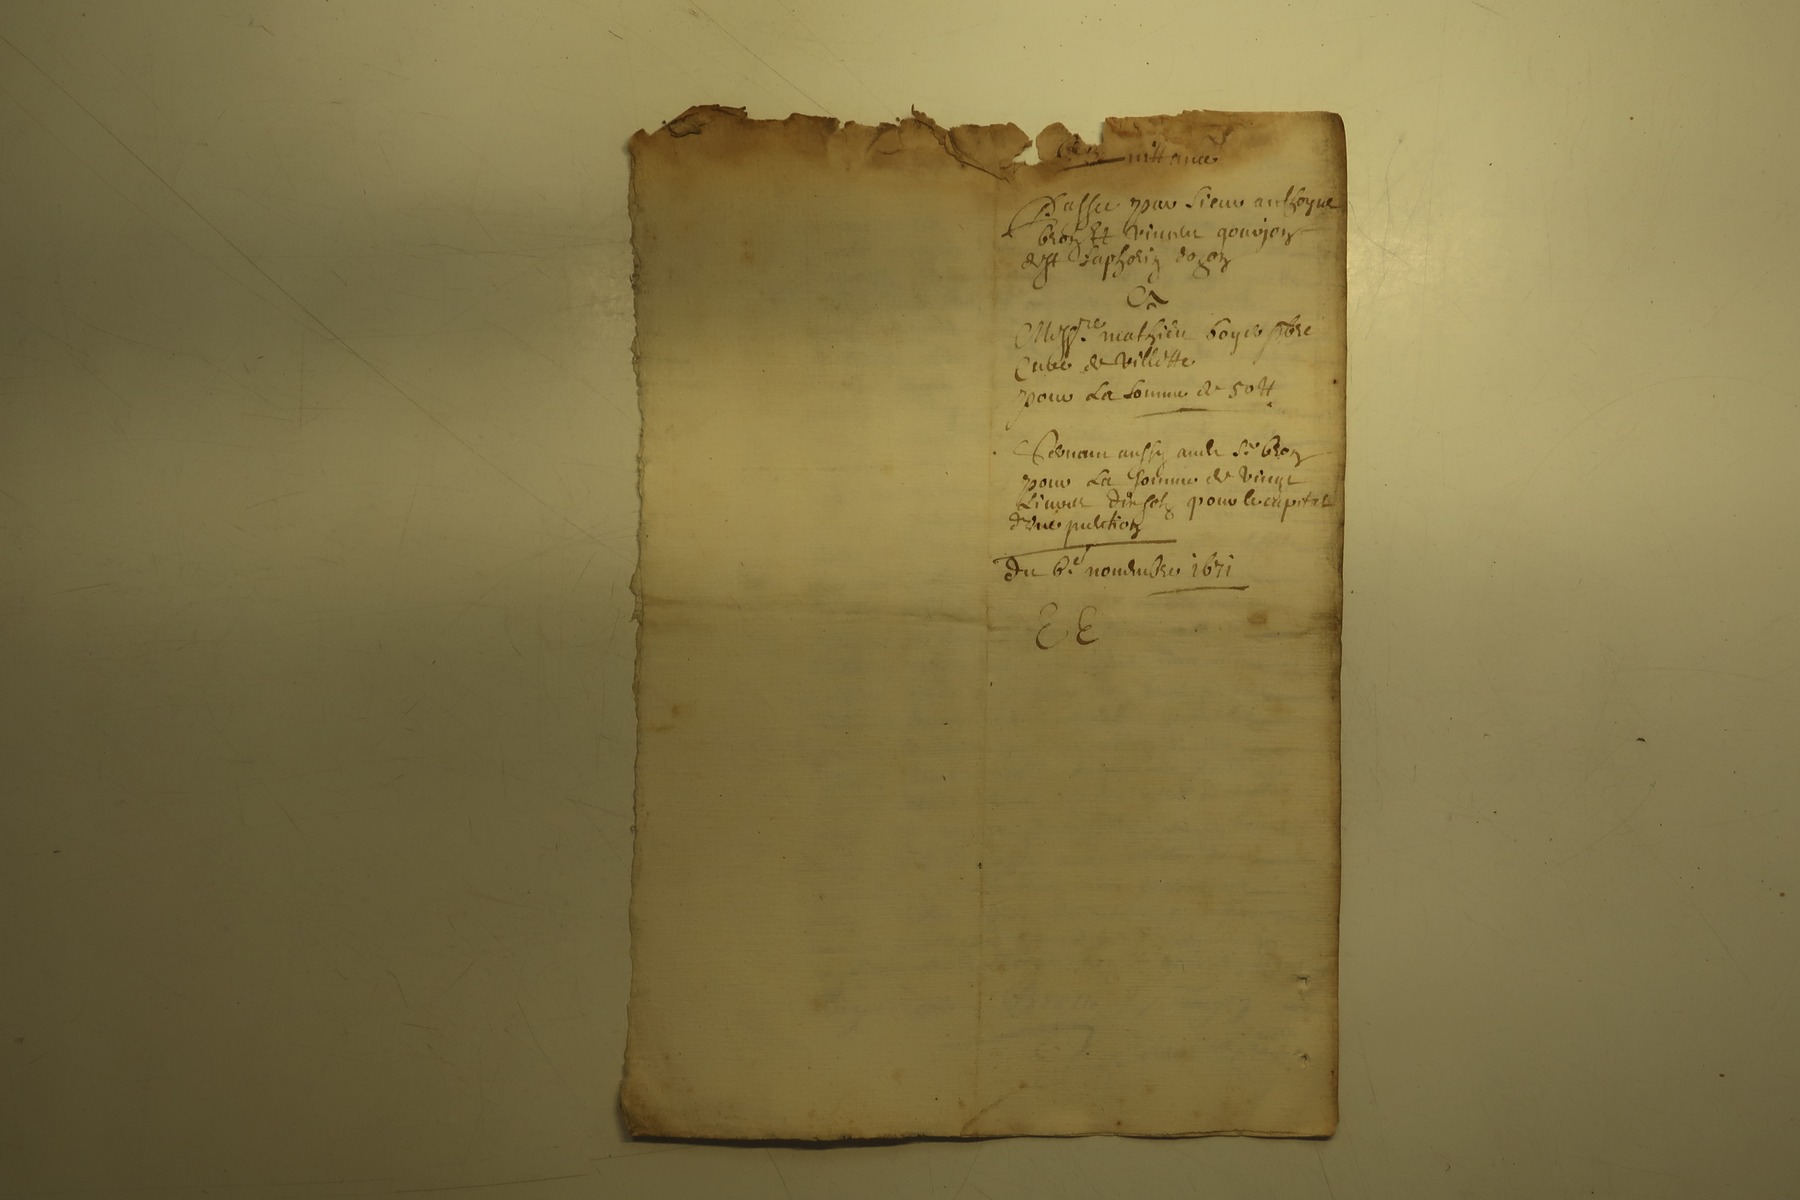 quittance
Passee par sieur anthoyne
bron et vincent goujon
de st saphorin dozon
A
Messre mathieu boyer pbre
Curé de villette
pour La somme de 50 tt
Servant aussy audt Sr bron
pour La somme de vingt
Livres dix solz pour le capital
d'une pention
du 6e novembre 1671
E E